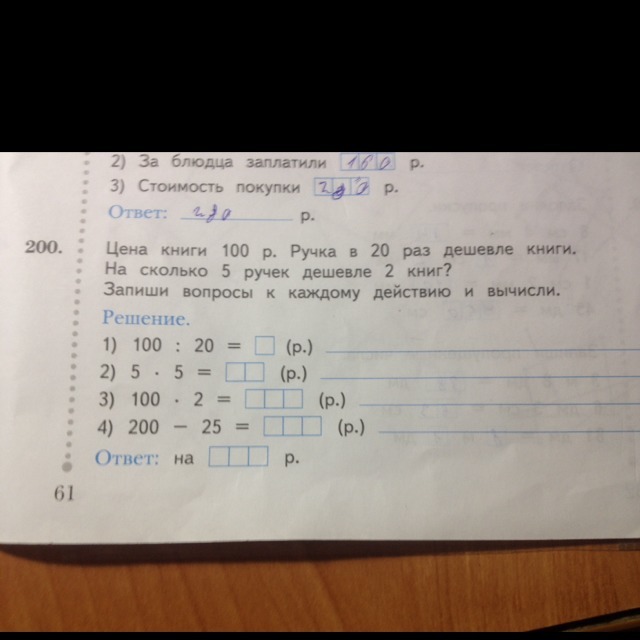 2) За блюдца заплатили 160 р.
3) Стоимость покупки р.
Ответ: р.
200. Цена книги 100 р. Ручка в 20 раз дешевле книги.
На сколько 5 ручек дешевле 2 книг?
Запиши вопросы к каждому действию и вычисли.
Решение.
1) 100 : 20 = (р.)
2) 5 · 5 = (р.)
3) 100 · 2 = (р.)
4) 200 − 25 = (р.)
Ответ: на р.
61